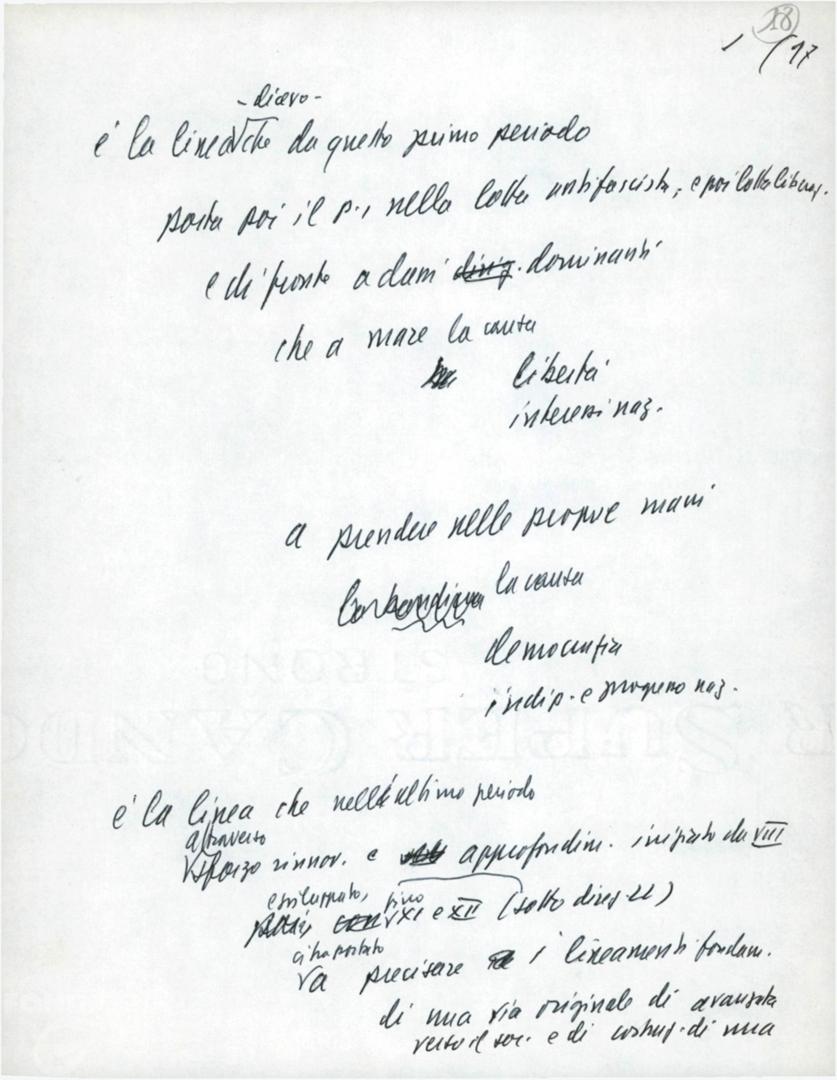 18
1 (17
- dicevo -
è la linea che da questo primo periodo
porta poi il p. nella lotta antifascista, e poi lotta liberaz.
e di fronte a classi dirig. dominanti
che a mare la causa
libertà
interessi naz.
a prendere nelle proprie mani
la causa
democrazia
indip. e progresso naz.
è la linea che nell'ultimo periodo
attraverso
sforzo rinnov. e approfondim. iniziato da VIII
e sviluppato, fino
XI e XII (sotto direz LL)
ci ha portato
a precisare i lineamenti fondam.
di una via originale di avanzata
verso il soc. e di costruz. di una